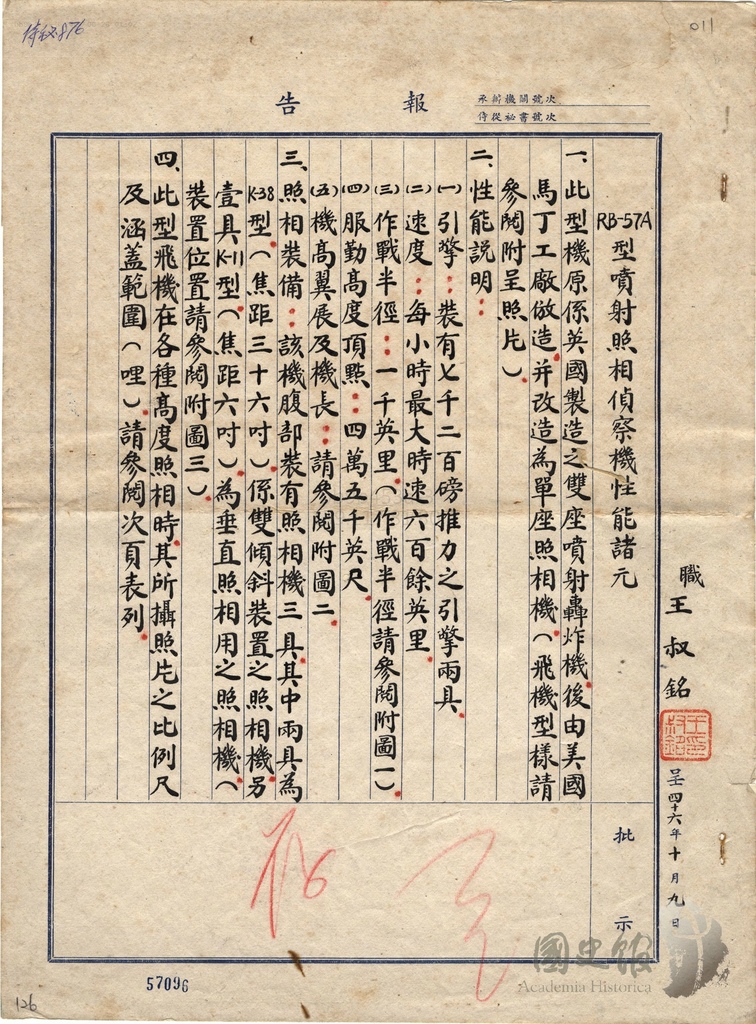 011
侍秘876
報告
承辦機關號次
侍從祕書號次
職王叔銘
呈四十六年十月九日
RB-57A型噴射照相偵察機性能諸元
一、此型機原係英國製造之雙座噴射轟炸機後由美國
馬丁工廠倣造并改造為單座照相機(飛機型樣請
參閱附呈照片)
二、性能説明：
(一)引擎：裝有七千二百磅推力之引擎兩具
(二)速度：每小時最大時速六百餘英里
(三)作戰半徑：一千英里(作戰半徑請參閱附圖一)
(四)服勤高度頂點：四萬五千英尺
(五)機高翼展及機長：請參閱附圖二
三、照相裝備：該機腹部裝有照相機三具其中兩具為
K-38型(焦距三十六吋)係雙傾斜裝置之照相機另
壹具K-11型(焦距六吋)為垂直照相用之照相機(
裝置位置請參閱附圖三)
四、此型飛機在各種高度照相時其所攝照片之比例尺
及涵蓋範圍(哩)請參閱次頁表列
批示
57096
126
國史館
Academia Historica